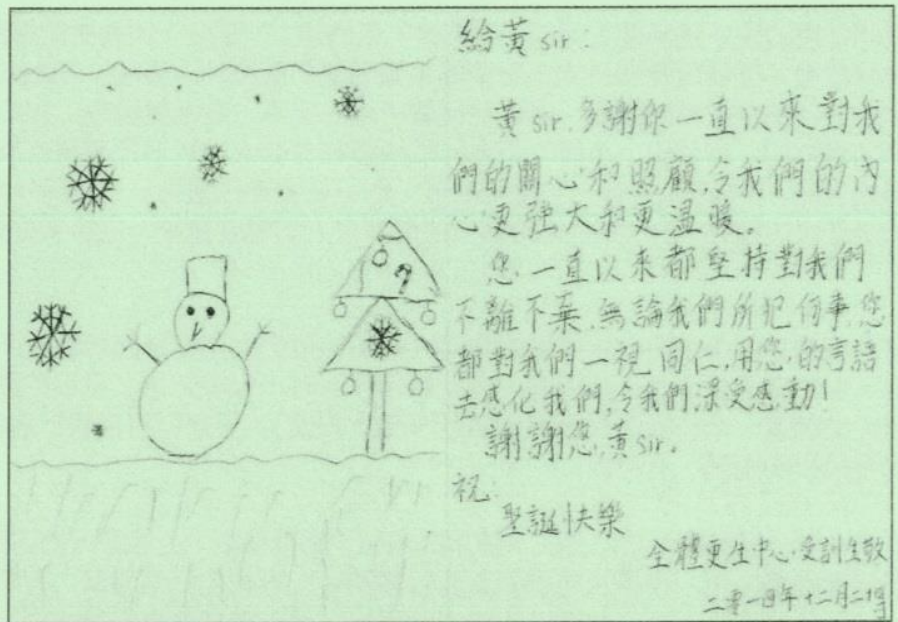 給黃 sir：
黃 sir，多謝你一直以來對我
們的關心和照顧，令我們的內
心更強大和更溫暖。
您一直以來都堅持對我們
不離不棄，無論我們所犯何事，您
都對我們一視同仁，用您的言語
去感化我們，令我們深受感動！
謝謝您，黃 sir。
祝：
聖誕快樂
全體更生中心受訓生敬
二零一四年十二月二十